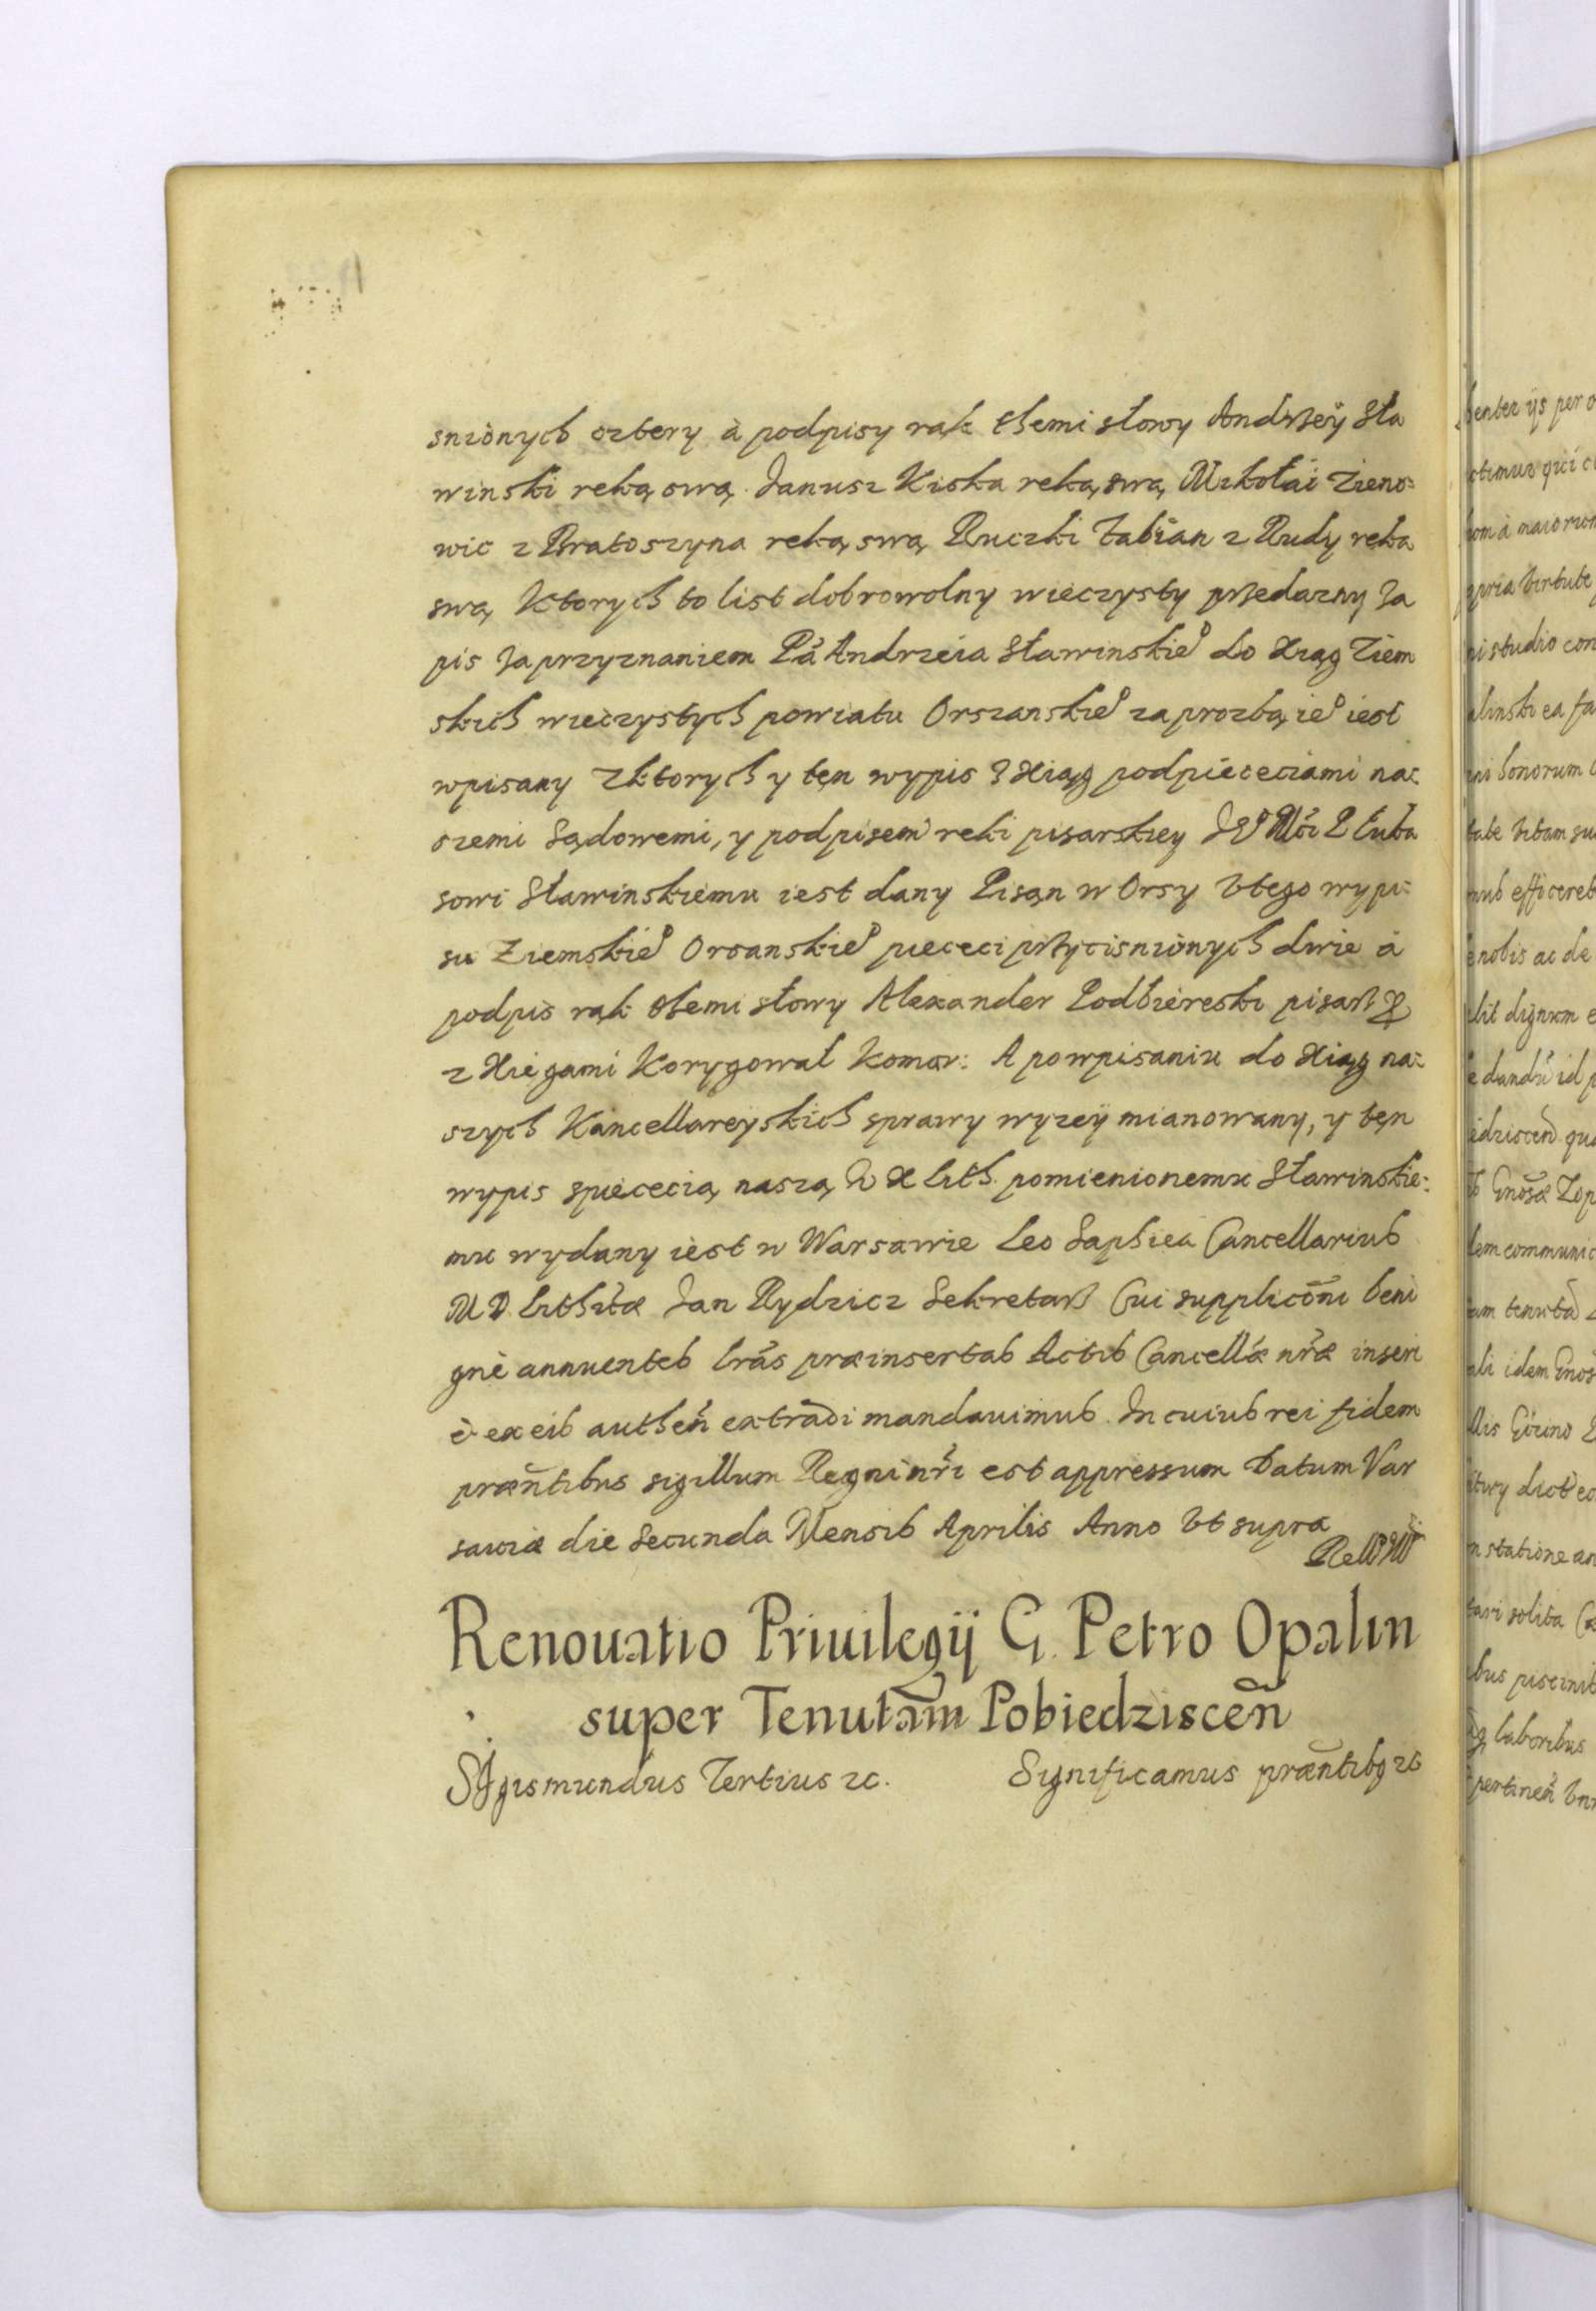 snionych cztery à podpisy rąk themi słowy Andrzey Sła
winski reką swą Janusz Kiska reką swą Mikołai Zieno=
wic z Bratoszyna reką swą Ruczki Fabian z Rudy reka
swą Ktorych to list dobrowolny wieczysty przedazny Za
pis Za przyznaniem Pá Andrzeia Sławinskie° do Xiąg Ziem
skich wieczystych powiatu Orszanskie° za prozbą ie° iest
wpisany Z ktorych y ten wypis z Xiąg pod piececiami na=
szemi Sądowemi, y podpisem reki pisarskiey Je° Mći P Łuka
sowi Sławinskiemu iest dany Pisan w Orsy V tego wypi=
su Ziemskie° Orsanskie° piececi przycisnionych dwie à
podpis rąk themi słowy Alexander Podbiereski pisarz
z Xiegami Korygował Komar: A po wpisaniu do Xiąg na=
szych Kancellareyskich sprawy wyzey mianowany, y ten
wypis s piececią naszą W X Lith. pomienionemu Sławinskie=
mu wydany iest w Warsawie Leo Saphiea Cancellarius
M D Lithuæ Jan Rydzicz Sekretarz Cui supplicõni beni
gnè annuentes lrás præinsertas Actis Cancellæ nr̃æ inseri
è ex eis authen̄ extradi mandauimus. In cuius rei fidem
præn̄tibus sigillum Regni nr̃i est appressum Datum Var
sauiæ die Secunda Mensis Aprilis Anno Vt supra
Renouatio Priuilegij G. Petro Opalin
super Tenutam̄ Pobiedziscen̄
Sigismundus Tertius zc. Significamus præn̄tibq zc